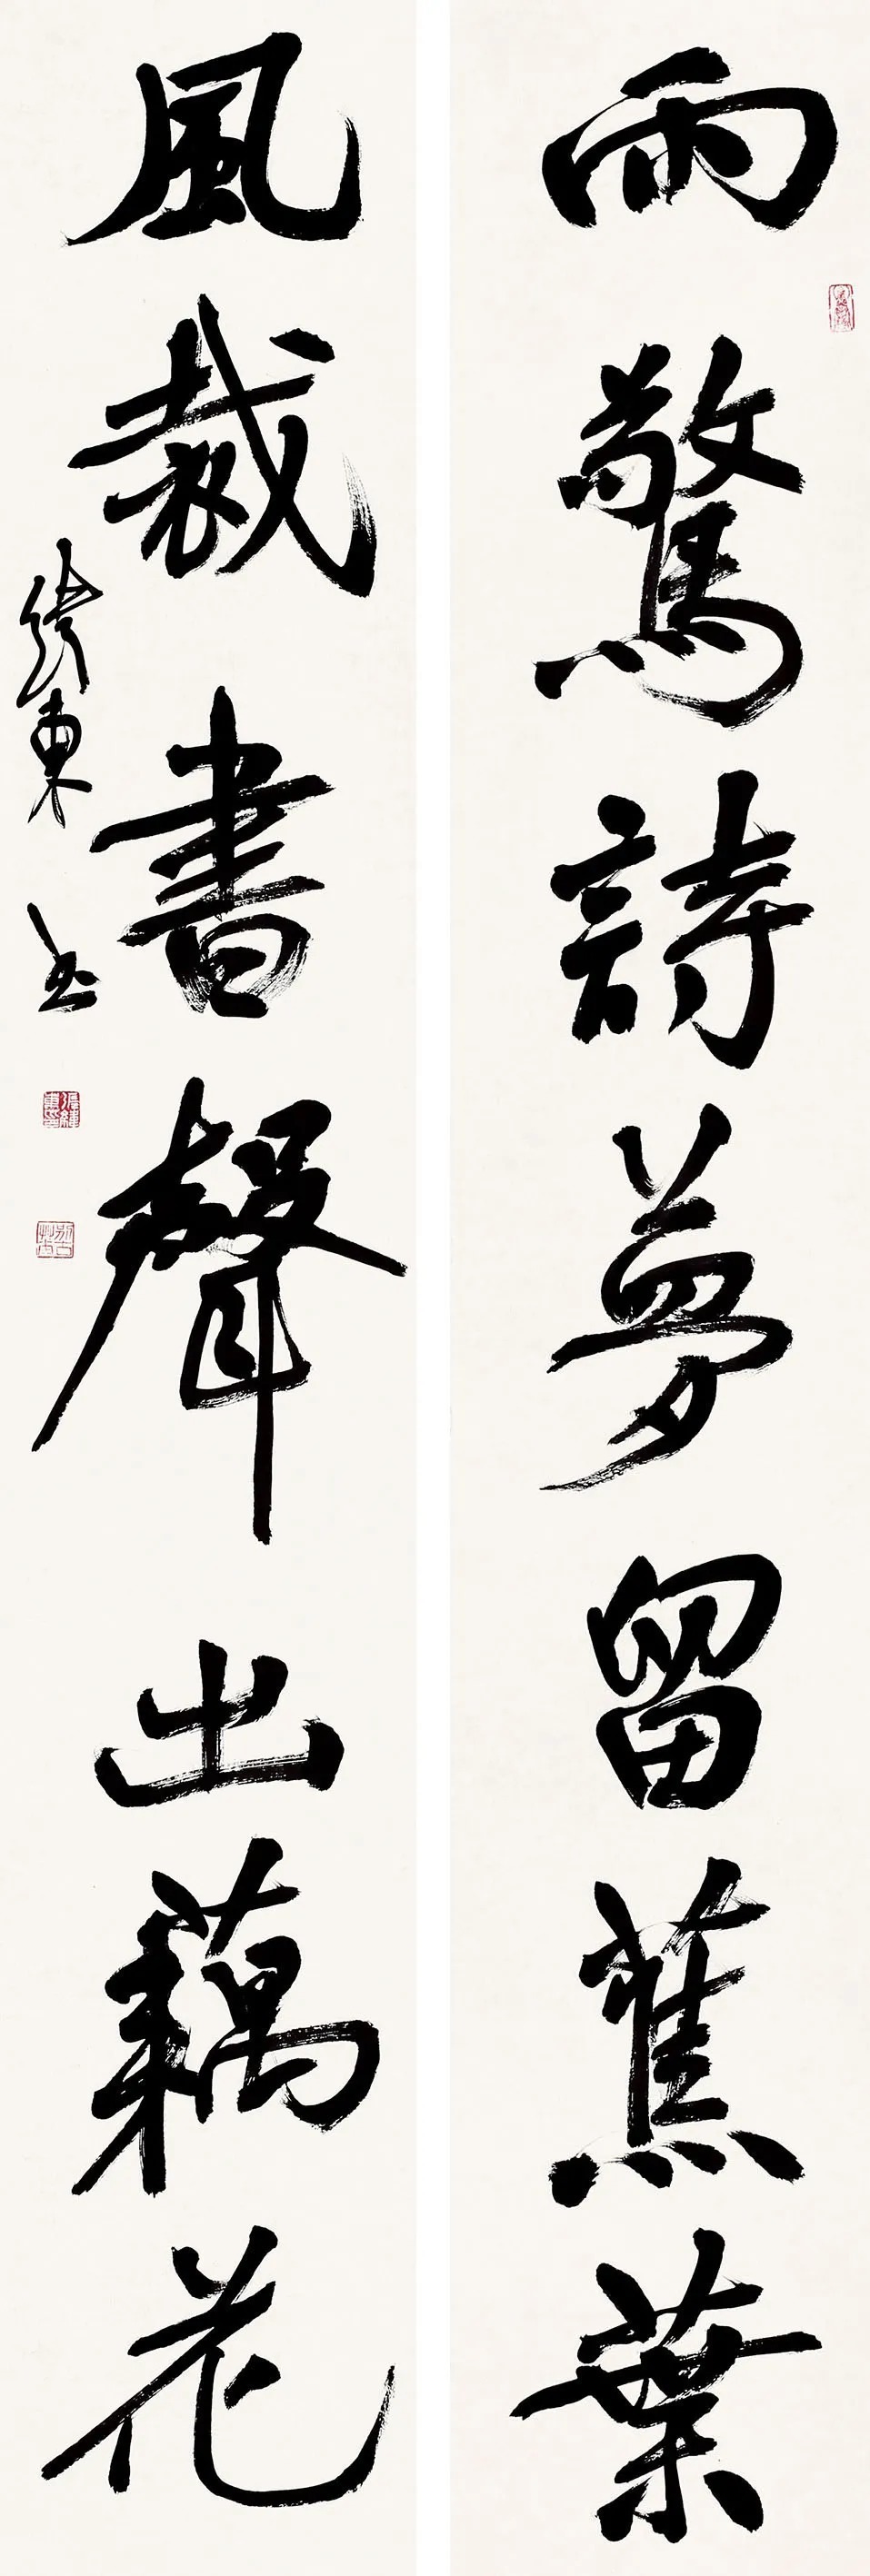 雨驚詩夢留蕉葉
風裁書聲出藕花
緯東书